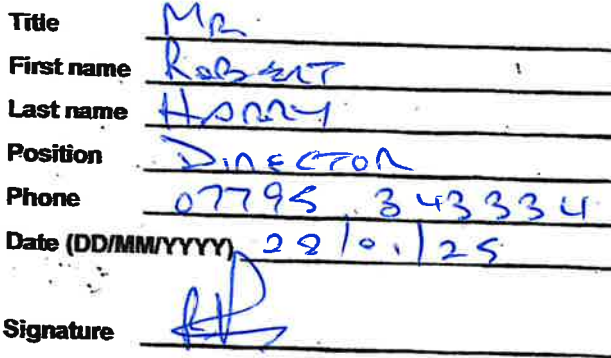 Title MR
First name ROBERT
Last name HARRY
Position DIRECTOR
Phone 07795 343334
Date (DD/MM/YYYY) 28/01/25
Signature